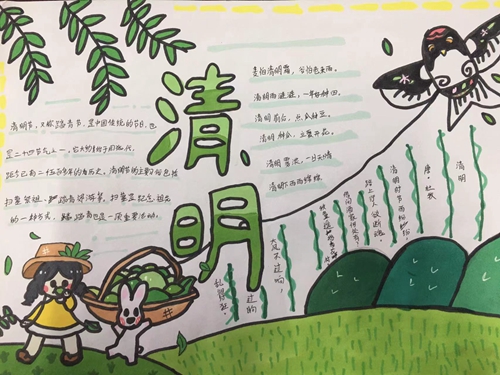 清明
清明节，又称踏青节，是中国传统的节日，也
是二十四节气之一，它大约始于周代，
距今已有二千五百多年的历史，清明节的主要节俗包括
扫墓祭祖、踏青郊游等。扫墓是纪念祖先
的一种方式，踏青也是一项重要活动。
麦怕清明霜，谷怕老来雨。
清明雨涟涟，一年好种田。
清明前后，点瓜种豆。
清明种瓜，立夏开花。
清明雾浓，一日天晴
清明
唐·杜牧
清明时节雨纷纷
路上行人欲断魂。
借问酒家何处有？